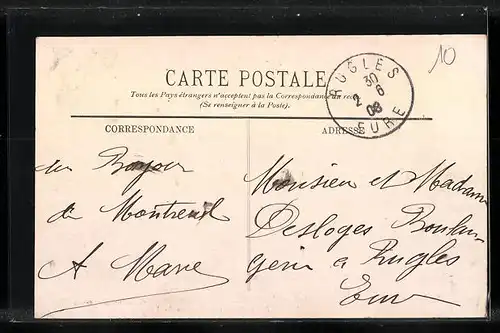 10
CARTE POSTALE
Tous les Pays étrangers n'acceptent pas la Correspondance au recto
(Se renseigner à la Poste).
RUGLES
30
2 6
08
EURE
CORRESPONDANCE
ADRESSE
un Bonjour
de Montreuil
A Marie
Monsieur et Madame
Desloges Boulan-
gerie a Rugles
Eure